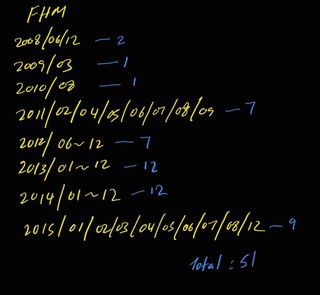 FHM
2008/06/12 - 2
2009/03 - 1
2010/08 - 1
2011/02/04/05/06/07/08/09 - 7
2012/06~12 - 7
2013/01~12 - 12
2014/01~12 - 12
2015/01/02/03/04/05/06/07/08/12 - 9
Total : 51